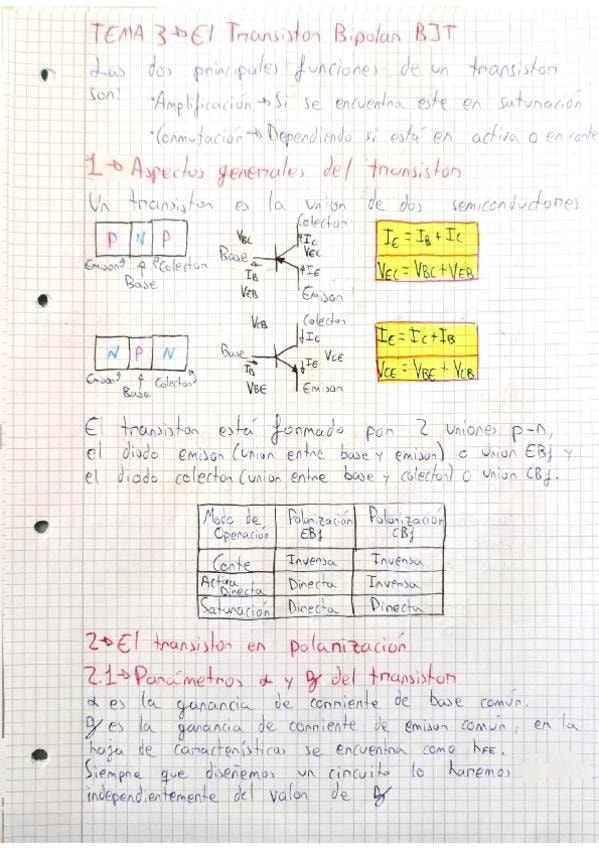 TEMA 3 → El Transistor Bipolar BJT
Las dos principales funciones de un transistor
son:
• Amplificación → Si se encuentra este en saturación
• Conmutación → Dependiendo si está en activa o en corte
1 → Aspectos generales del transistor
Un transistor es la union de dos semiconductores
P N P
Emisor Colector
Base
Colector
VBC IC
VEC
Base
IB IE
VEB
Emisor
IE = IB + IC
VEC = VBC + VEB
N P N
Emisor Colector
Base
VCB Colector
IC
Base VCE
IB IE
VBE Emisor
IE = IC + IB
VCE = VBE + VCB
El transistor está formado por 2 uniones p-n,
el diodo emisor (union entre base y emisor) o union EBj y
el diodo colector (union entre base y colector) o union CBj.
Modo de Operación Polarización EBj Polarización CBj
Corte Inversa Inversa
Activa Directa Directa Inversa
Saturación Directa Directa
2 → El transistor en polarización
2.1 → Parámetros α y β del transistor
α es la ganancia de corriente de base común.
β es la ganancia de corriente de emisor común, en la
hoja de características se encuentra como hFE.
Siempre que diseñemos un circuito lo haremos
independientemente del valor de β